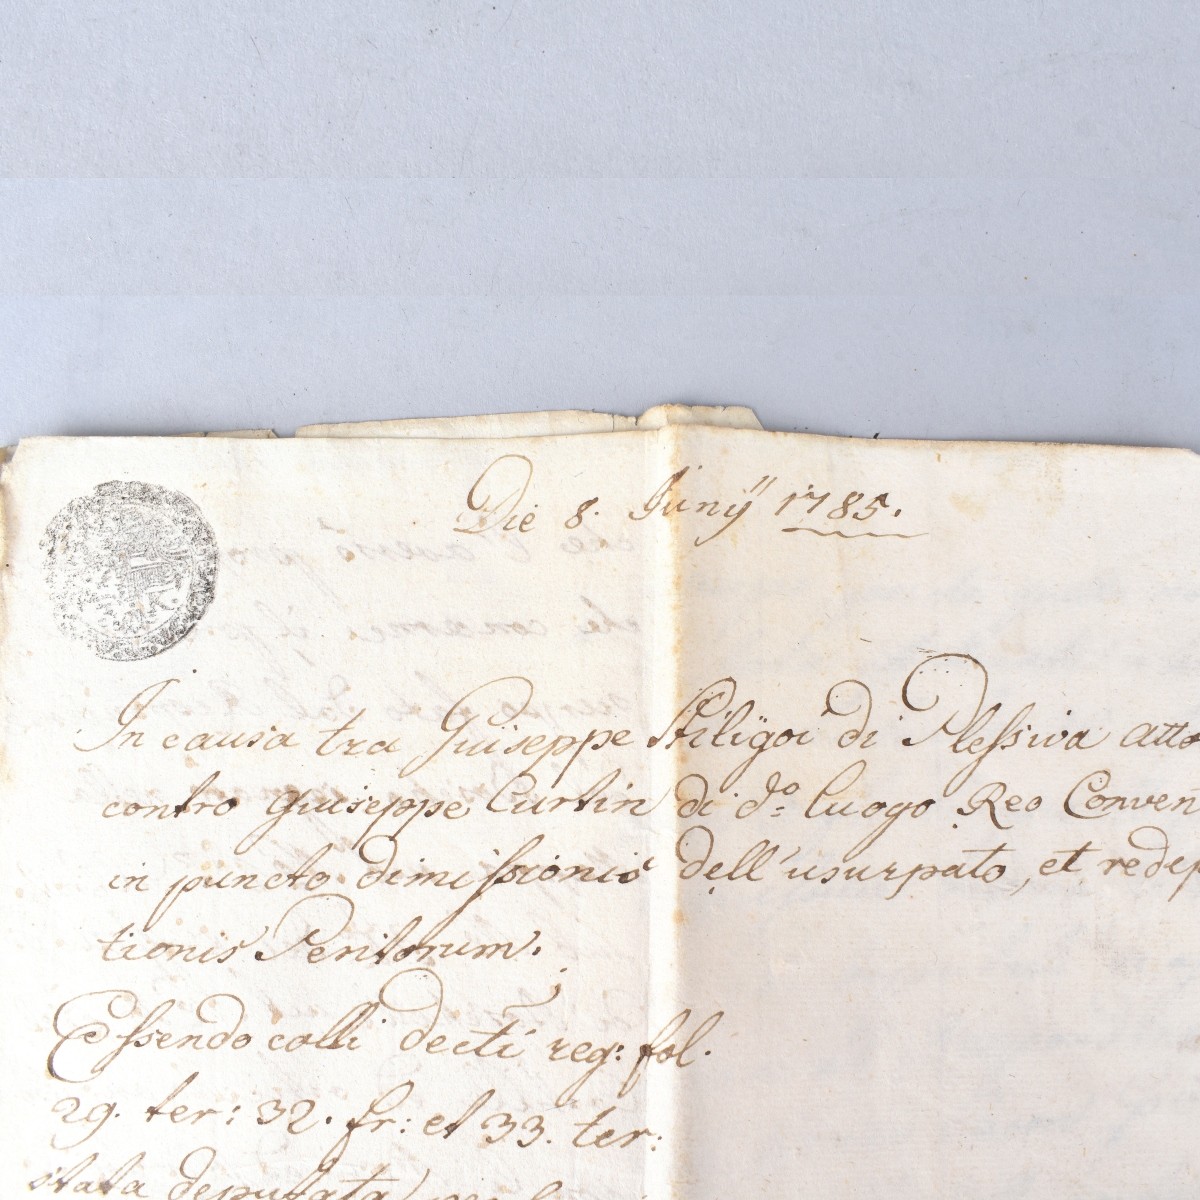 Die 8. Junÿ 1785.
K.
In causa tra Giuseppe Filigoi di Plessiva atto
contro Giuseppe Curtin di dº luogo Reo Conven
in puncto dimissionis dell'usurpato, et redep
tionis Peritorum.
Essendo colli decti reg: fol.
29. ter: 32. fr: et 33. ter:
stata deputata